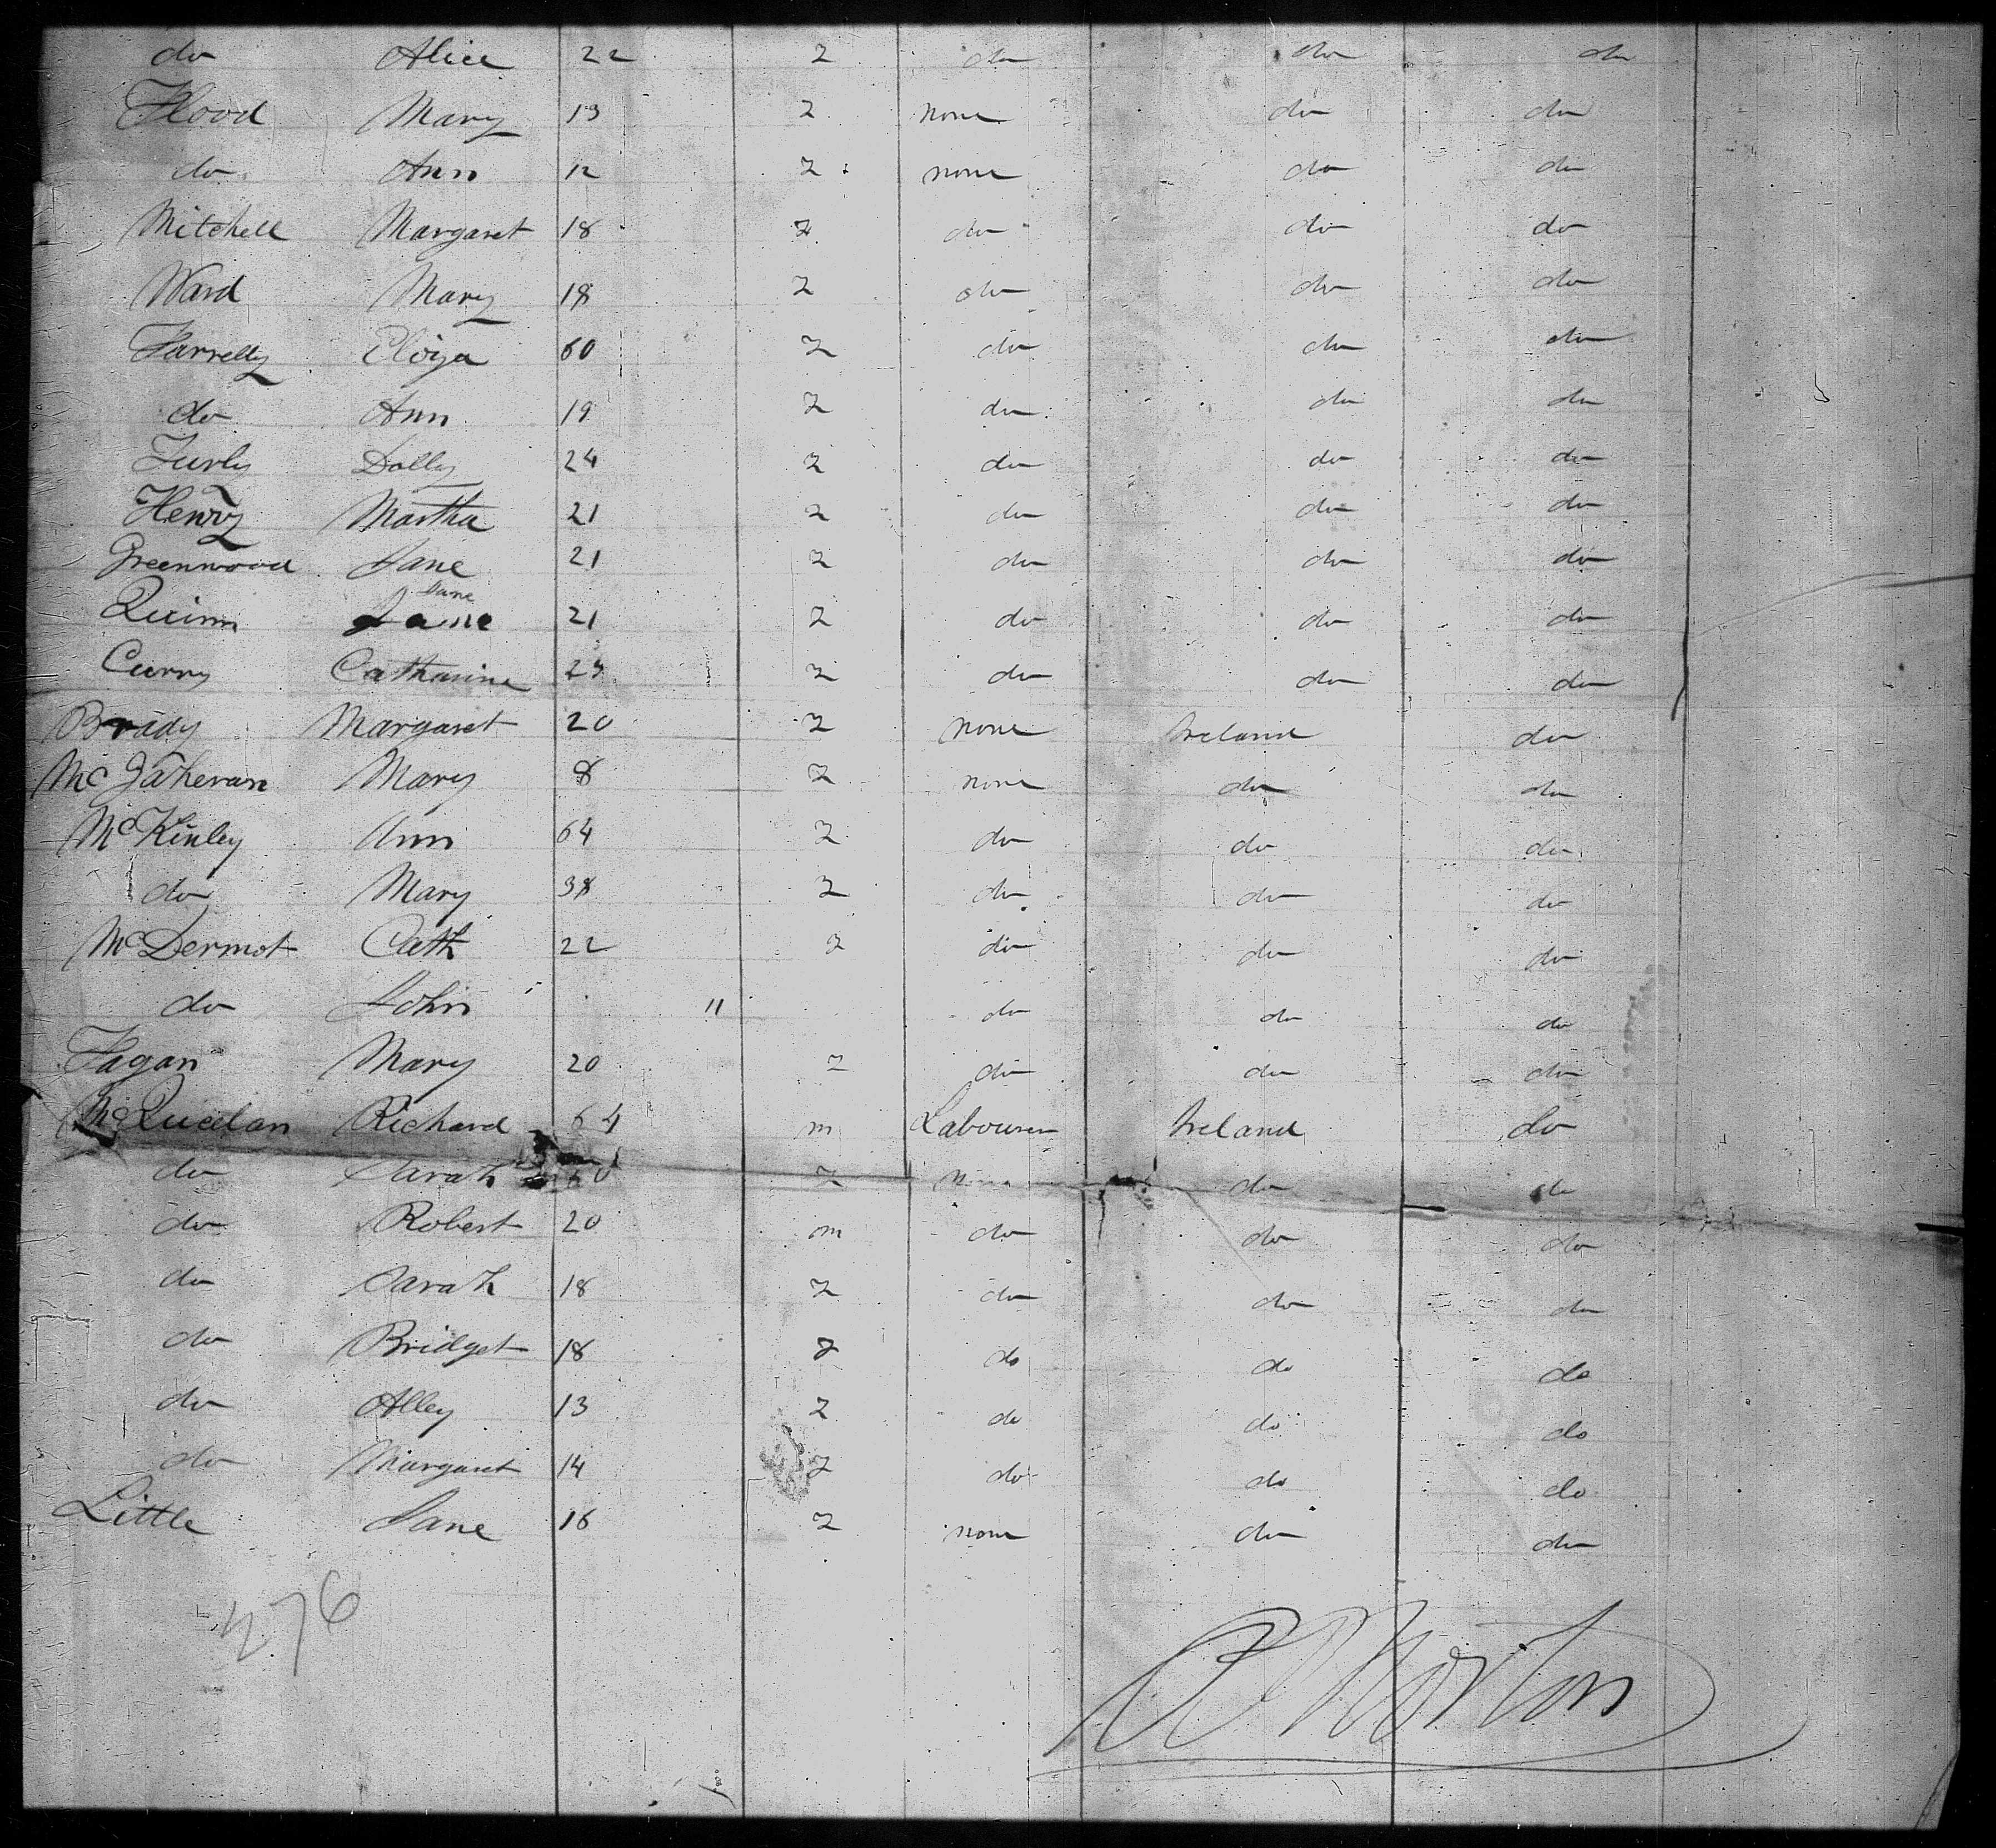 do Alice 22 2 do do do
Flood Mary 13 2 none do do
do Ann 12 2 none do do
Mitchell Margaret 18 2 do do do
Ward Mary 18 2 do do do
Farrelly Eliza 60 2 do do do
do Ann 19 2 do do do
Turly Dolly 24 2 do do do
Henry Martha 21 2 do do do
Greenwood Jane 21 2 do do do
Jane
Quinn Jane 21 2 do do do
Curry Catharine 23 2 do do do
Brady Margaret 20 2 none Ireland do
Mary 8 2 none do do
McKinley Ann 64 2 do do do
do Mary 38 2 do do do
McDermot Cath 22 2 do do do
do John 11 do do do
Fagan Mary 20 2 do do do
Richard 64 m Labourer Ireland do
do Sarah 2 do do
do Robert 20 m do do do
do Sarah 18 2 do do do
do Bridget 18 do do do
do Alley 13 2 do do do
do Margaret 14 2 do do do
Little Jane 16 2 none do do
276
Morton